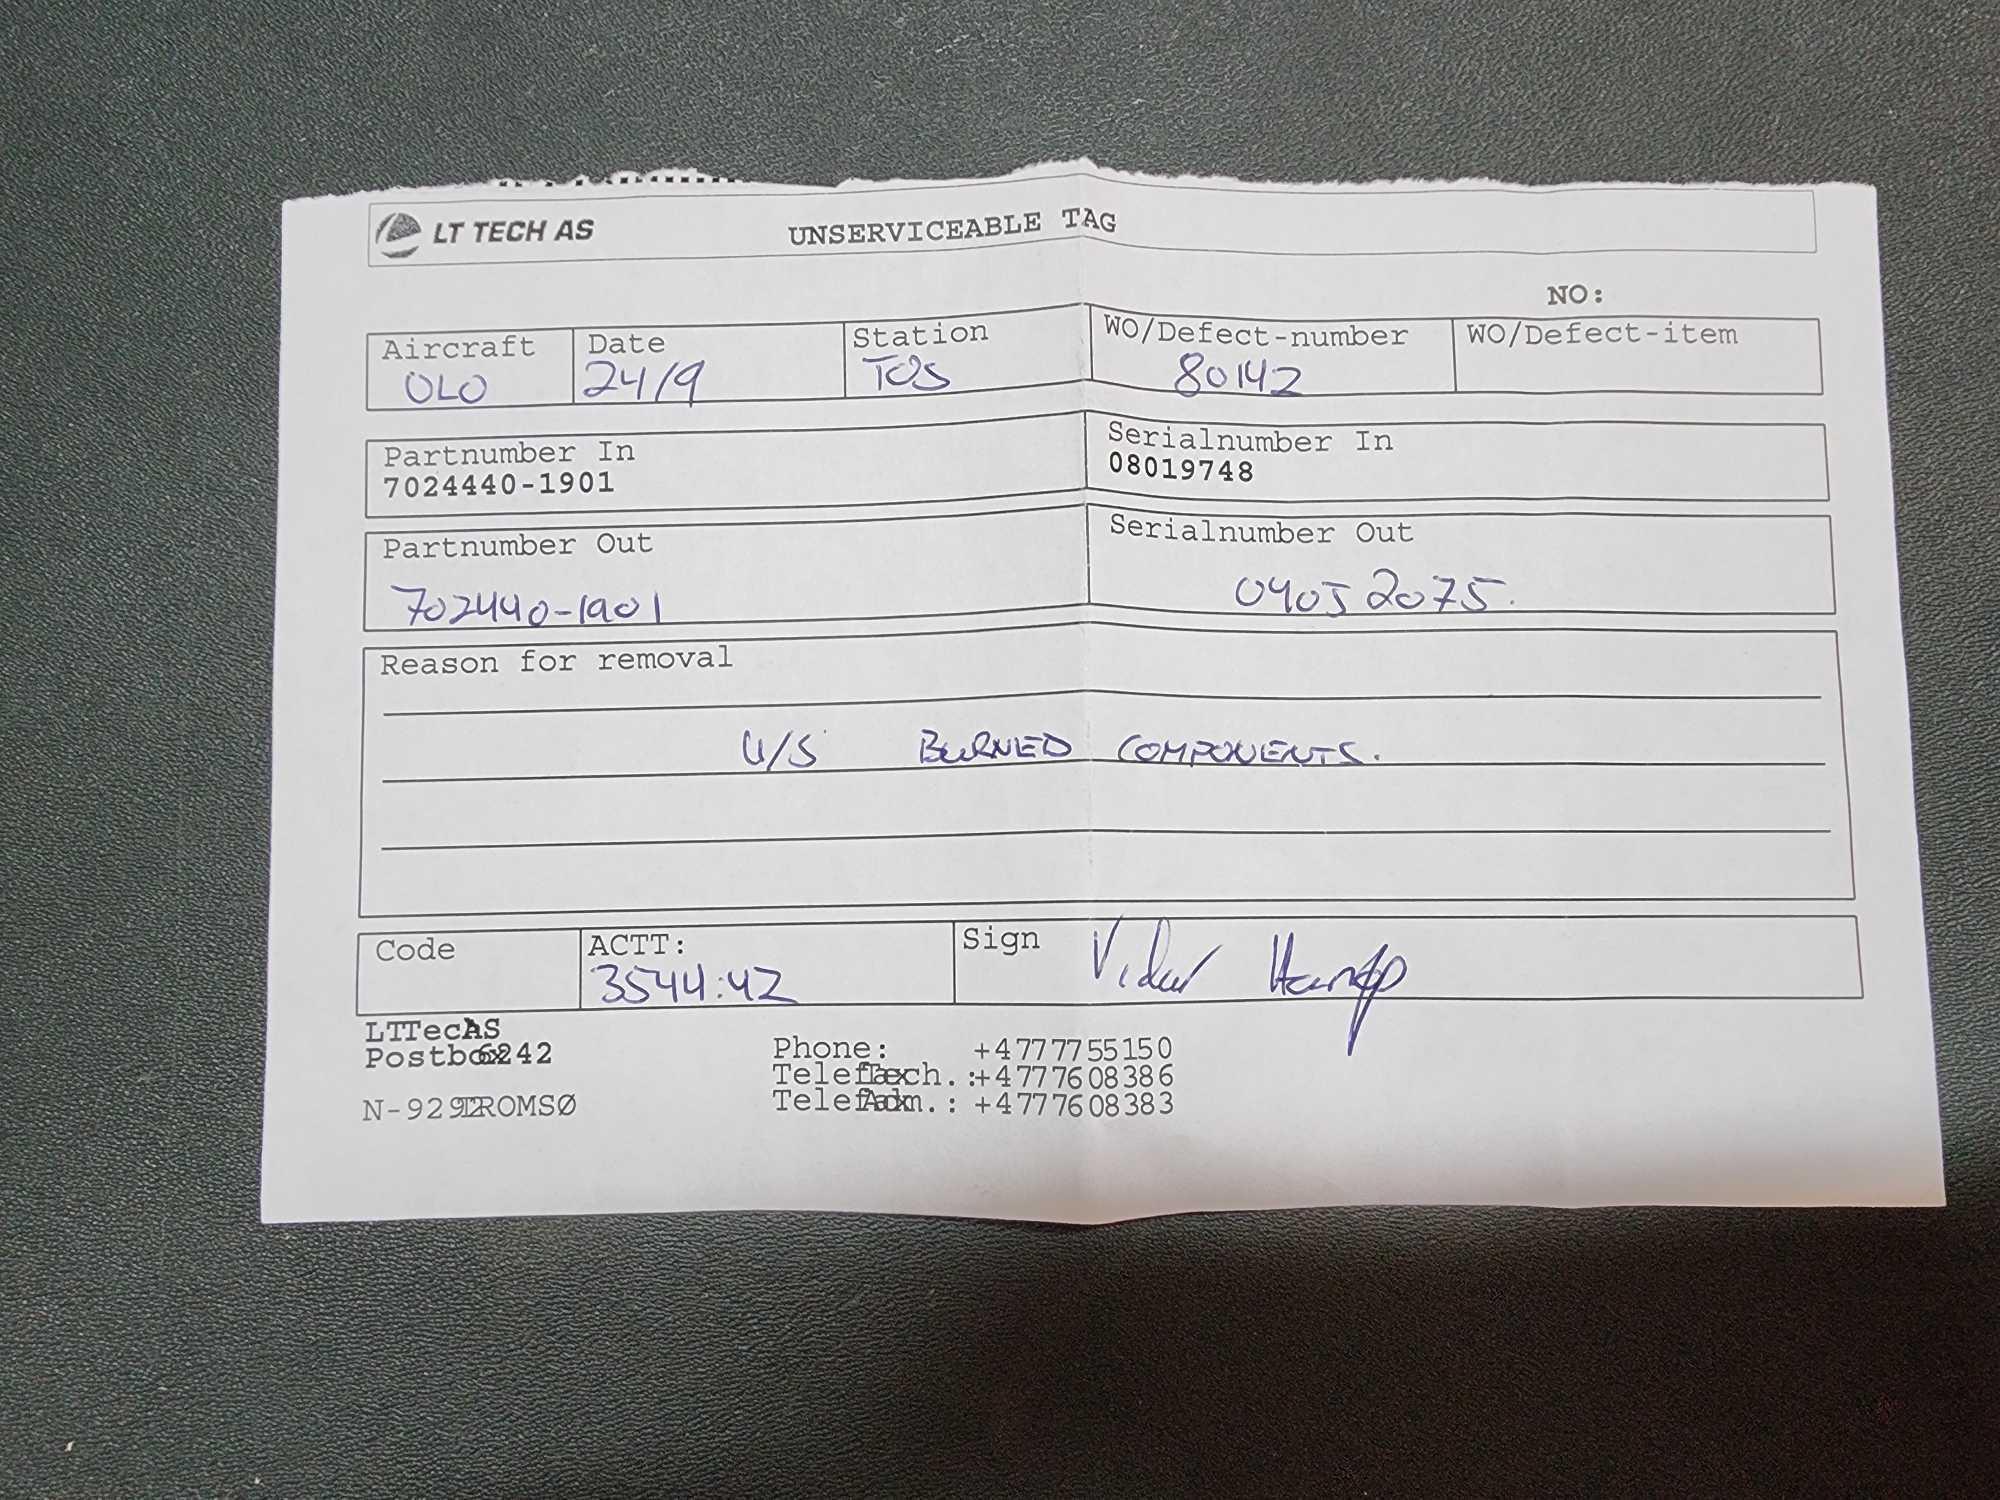 LT TECH AS UNSERVICEABLE TAG
NO:
Aircraft Date Station WO/Defect-number WO/Defect-item
OLO 24/9 TOS 80142
Partnumber In Serialnumber In
7024440-1901 08019748
Partnumber Out Serialnumber Out
702440-1901 04052075.
Reason for removal
U/S BURNED COMPONENTS.
Code ACTT: Sign
3544:42 Vidar
LTTechAS
Postbox6242 Phone: +4777755150
Telefax Tech.:+4777608386
N-9292TROMSØ Telefax Adm.: +4777608383